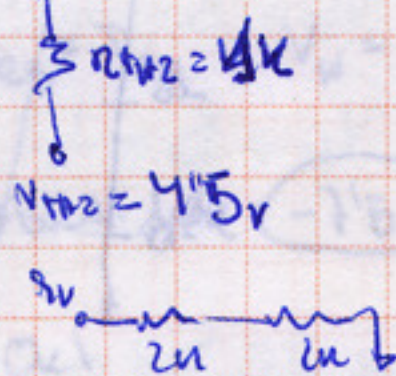 RTH2 = 1K
VTH2 = 4'5V
9V
2K 2K